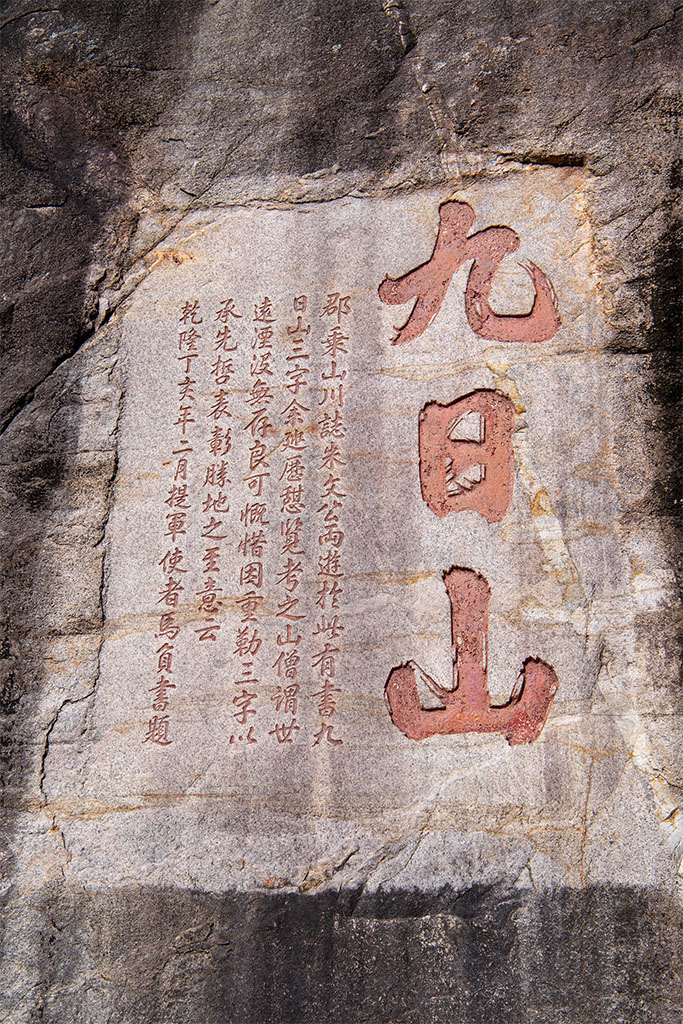 九日山
郡乘山川誌朱文公両遊於此有書九
日山三字余延歷憇覽考之山僧謂世
遠湮没無存良可慨惜因重勒三字以
承先哲表彰勝地之至意云
乾隆丁亥年二月提軍使者馬負書題